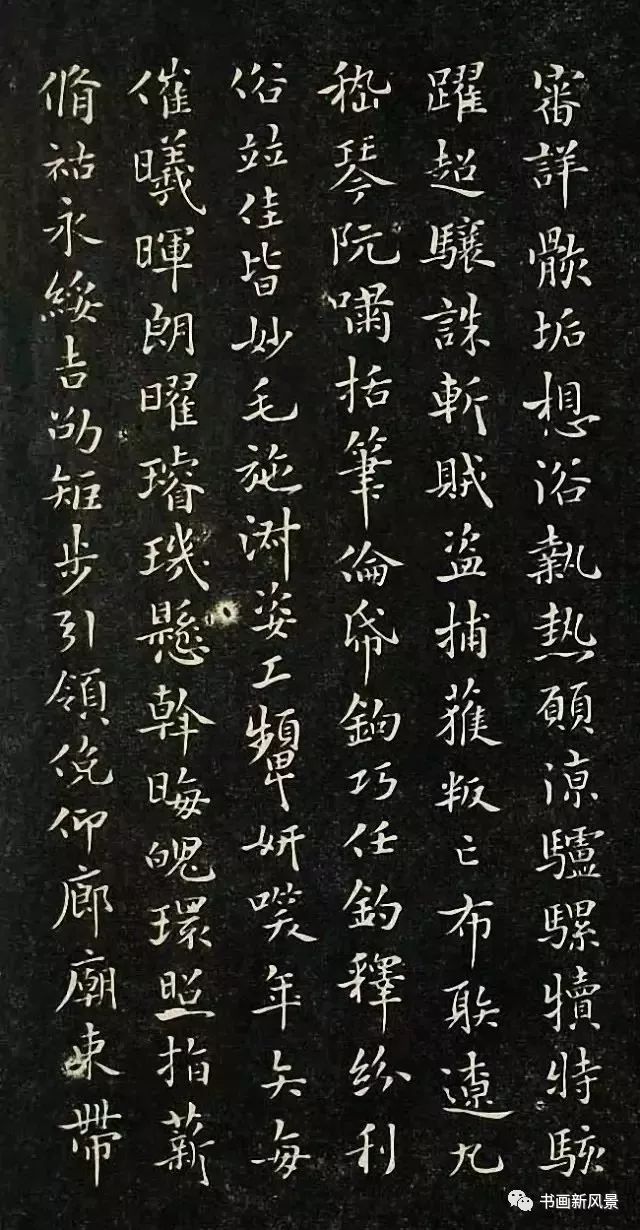 審詳骸垢想浴執熱願涼驢騾犢特駭
躍超驤誅斬賊盜捕獲叛亡布射遼丸
嵇琴阮嘯恬筆倫帋鈞巧任釣釋紛利
俗竝佳皆妙毛施淑姿工顰妍笑年矢每
催曦暉朗曜璿璣懸斡晦魄環照指薪
脩祜永綏吉劭矩步引領俛仰廊廟束帶
书画新风景